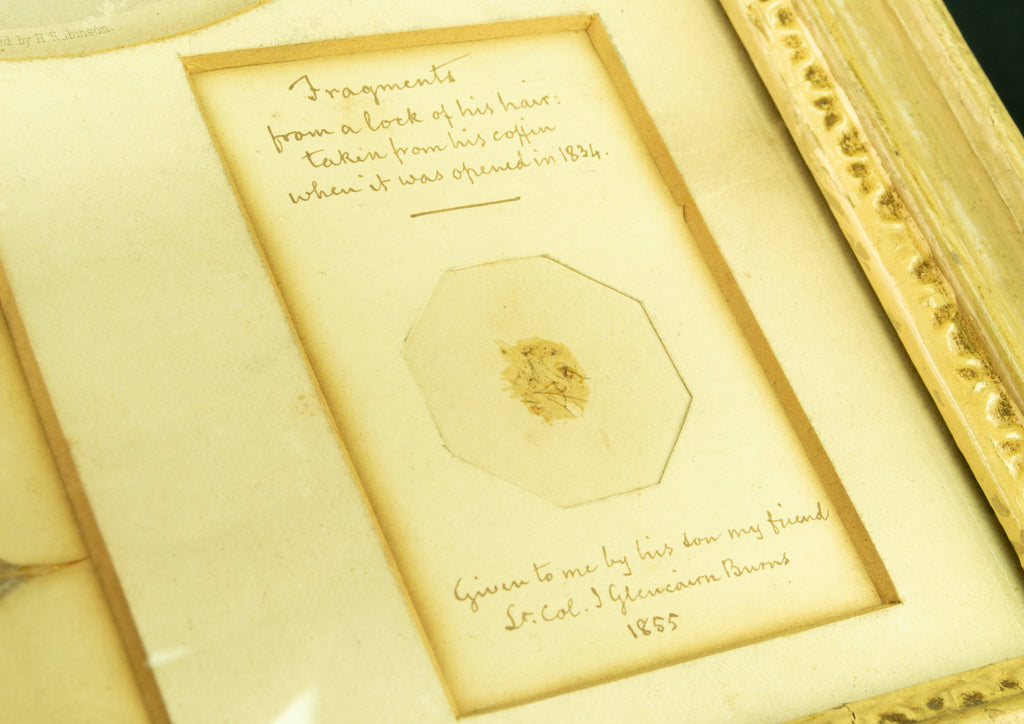 ed by H. Robinson.
Fragments
from a lock of his hair:
taken from his coffin
when it was opened in 1834.
Given to me by his son my friend
Lt. Col. J Glencairn Burns
1855